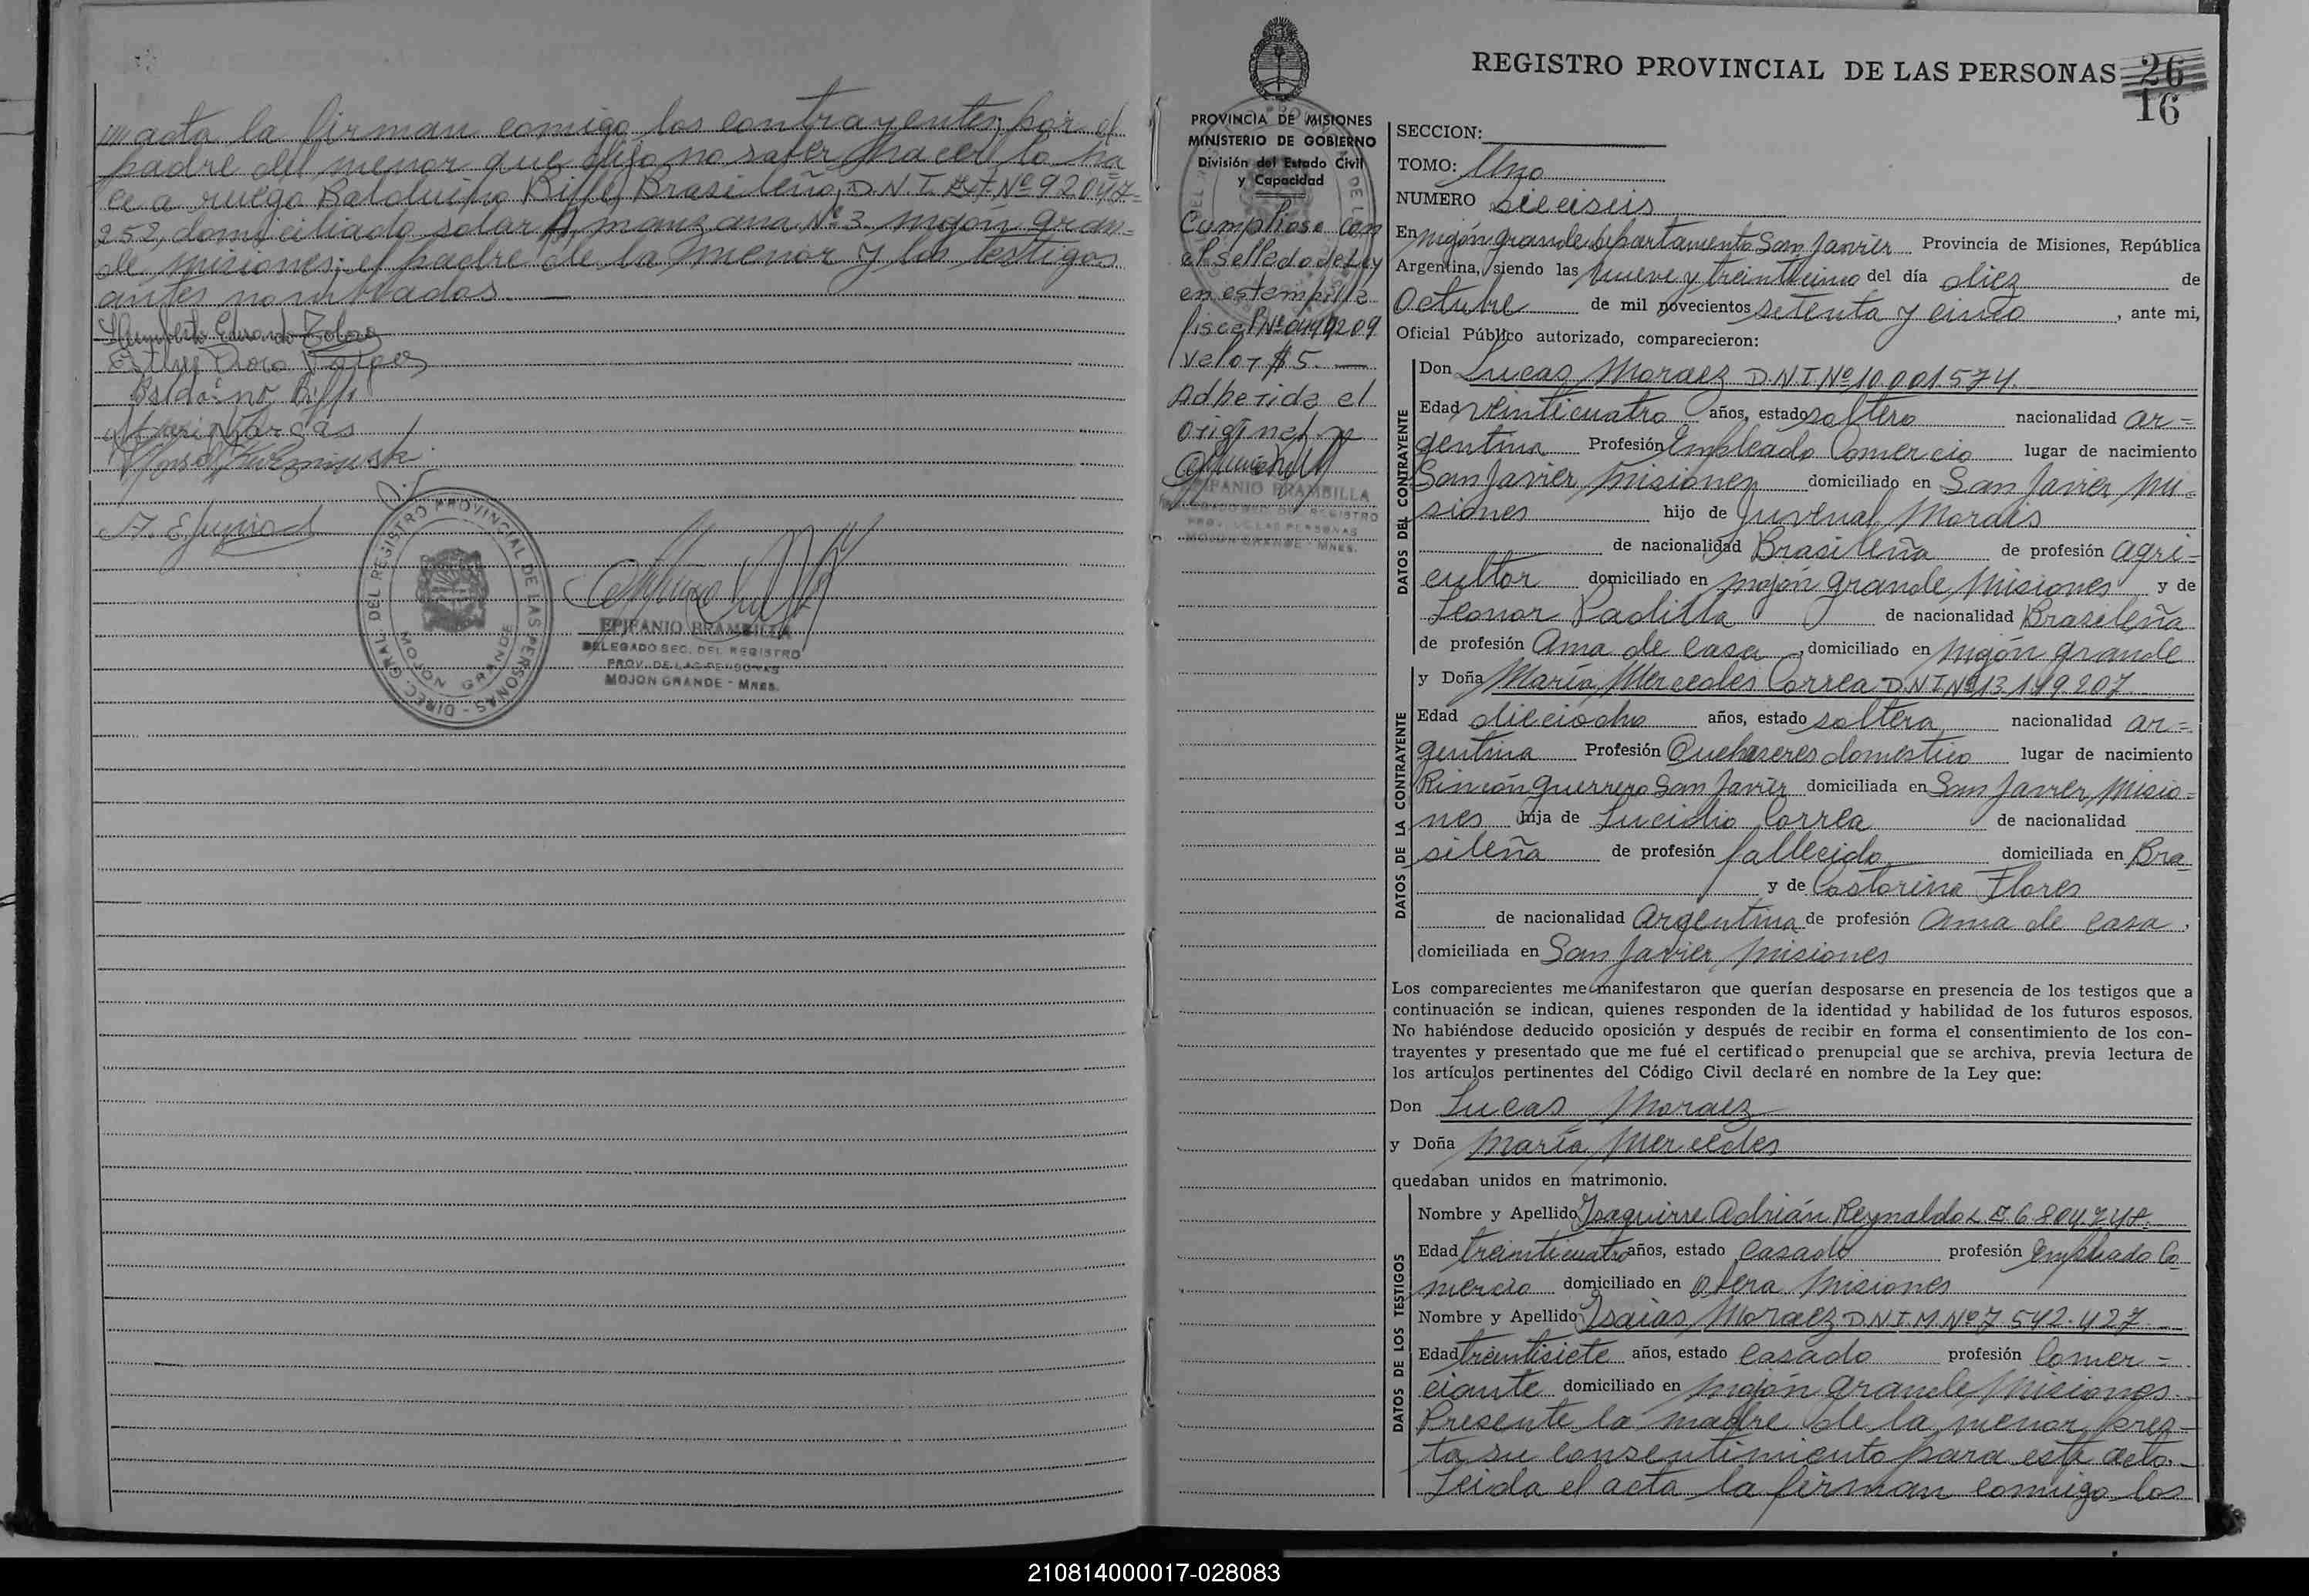 acta la firman comigo los contrayentes, por el
padre del menor que dijo no saber hacerlo ha
ce a ruego Balduino Biffe, Brasileño, D.N.I. Ext Nº 92047=
252, domiciliado solar manzana Nº 3 mojón gran=
de misiones; el padre de la menor y los testigos
antes nombrados. —
Humberto Eduardo
Dora Vargas
Balduino Biffi
Vargas
REGISTRO PROVINCIAL DE LAS PERSONAS - DIREC. GRAL. DEL
MOJON GRANDE
EPIFANIO BRAMBILLA
DELEGADO SEC. DEL REGISTRO
PROV. DE LAS PERSONAS
MOJON GRANDE - MNES.
PROVINCIA DE MISIONES
MINISTERIO DE GOBIERNO
División del Estado Civil
y Capacidad
Cumpliose con
el sellado de Ley
en estampilla
fiscal Nº 0449209
valor $ 5. —
Adherida al
original
EPIFANIO BRAMBILLA
DELEGADO SEC. DEL REGISTRO
PROV. DE LAS PERSONAS
MOJON GRANDE - MNES.
REGISTRO PROVINCIAL DE LAS PERSONAS 26
16
SECCION:
TOMO: Uno
NUMERO dieciseis
En mojón grande departamento San Javier Provincia de Misiones, República
Argentina, siendo las nueve y treinticinco del día diez de
Octubre de mil novecientos setenta y cinco, ante mi,
Oficial Público autorizado, comparecieron:
DATOS DEL CONTRAYENTE
Don Lucas Moraez D.N.I Nº 10.001.574.
Edad veinticuatro años, estado soltero nacionalidad ar=
gentina Profesión Empleado Comercio lugar de nacimiento
San Javier Misiones domiciliado en San Javier Mi=
siones hijo de Juvenal Morais
de nacionalidad Brasileña de profesión agri=
cultor domiciliado en mojón grande Misiones y de
Leonor Padilla de nacionalidad Brasileña
de profesión Ama de casa, domiciliado en mojón grande
DATOS DE LA CONTRAYENTE
y Doña María Mercedes Correa D.N.I Nº 13.149.207
Edad dieciocho años, estado soltera nacionalidad ar=
gentina Profesión Quehaseres domestico lugar de nacimiento
Rincón guerrero San Javier domiciliada en San Javier Misio=
nes hija de Lucidio Correa de nacionalidad
sileña de profesión fallecido domiciliada en Bra=
y de Castorina Flores
de nacionalidad Argentina de profesión ama de casa,
domiciliada en San Javier Misiones
Los comparecientes me manifestaron que querían desposarse en presencia de los testigos que a
continuación se indican, quienes responden de la identidad y habilidad de los futuros esposos.
No habiéndose deducido oposición y después de recibir en forma el consentimiento de los con-
trayentes y presentado que me fué el certificado prenupcial que se archiva, previa lectura de
los artículos pertinentes del Código Civil declaré en nombre de la Ley que:
Don Lucas Moraez
y Doña María Mercedes
quedaban unidos en matrimonio.
DATOS DE LOS TESTIGOS
Nombre y Apellido Isaguirre Adrián Reynaldo L E 6.804.748
Edad treinticuatro años, estado casado profesión Empleado Co
mercio domiciliado en Obera Misiones
Nombre y Apellido Isaias Moraez D.N.I.M. Nº 7 542.427
Edad treintisiete años, estado casado profesión Comer=
ciante domiciliado en mojón grande Misiones.
Presente la madre de la menor, pres=
ta su consentimiento para este acto.—
Leida el acta la firman comigo los
210814000017-028083